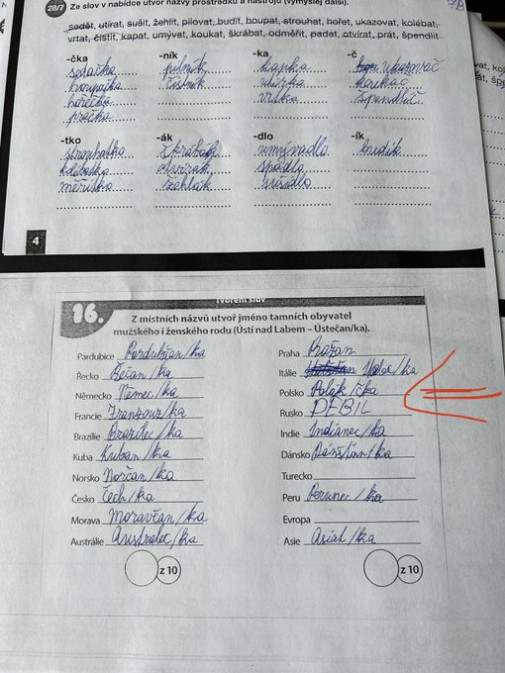 28/7 Ze slov v nabídce utvoř názvy prostředků a nástrojů (vymýšlej další).
sedět, utírat, sušit, žehlit, pilovat, budit, houpat, strouhat, hořet, ukazovat, kolébat,
vrtat, čistit, kapat, umývat, koukat, škrábat, odměřit, padat, otvírat, prát, špendlit
-čka -ník -ka -č
sedačka pilník kapka ukazovač
houpačka čistník utírka koukač
hořečka vrtka špendlič
pračka
-tko -ák -dlo -ík
strouhatko škrabák umývadlo budík
kolébatko otvírák spadlo
měřítko žehlák sušidlo
4
Tvoření slov
16. Z místních názvů utvoř jméno tamních obyvatel
mužského i ženského rodu (Ústí nad Labem – Ústečan/ka).
Pardubice Pardubičan/ka Praha Pražan
Řecko Řečan/ka Itálie Ital/ka
Německo Němec/ka Polsko Polák/čka
Francie Francouz/ka Rusko DEBIL
Brazílie Brazilec/ka Indie Indianec/ka
Kuba Kuban/ka Dánsko Dánštan/ka
Norsko Norčan/ka Turecko
Česko Čech/ka Peru Perunec/ka
Morava Moravčan/ka Evropa
Austrálie Australec/ka Asie Asiat/ka
z 10 z 10